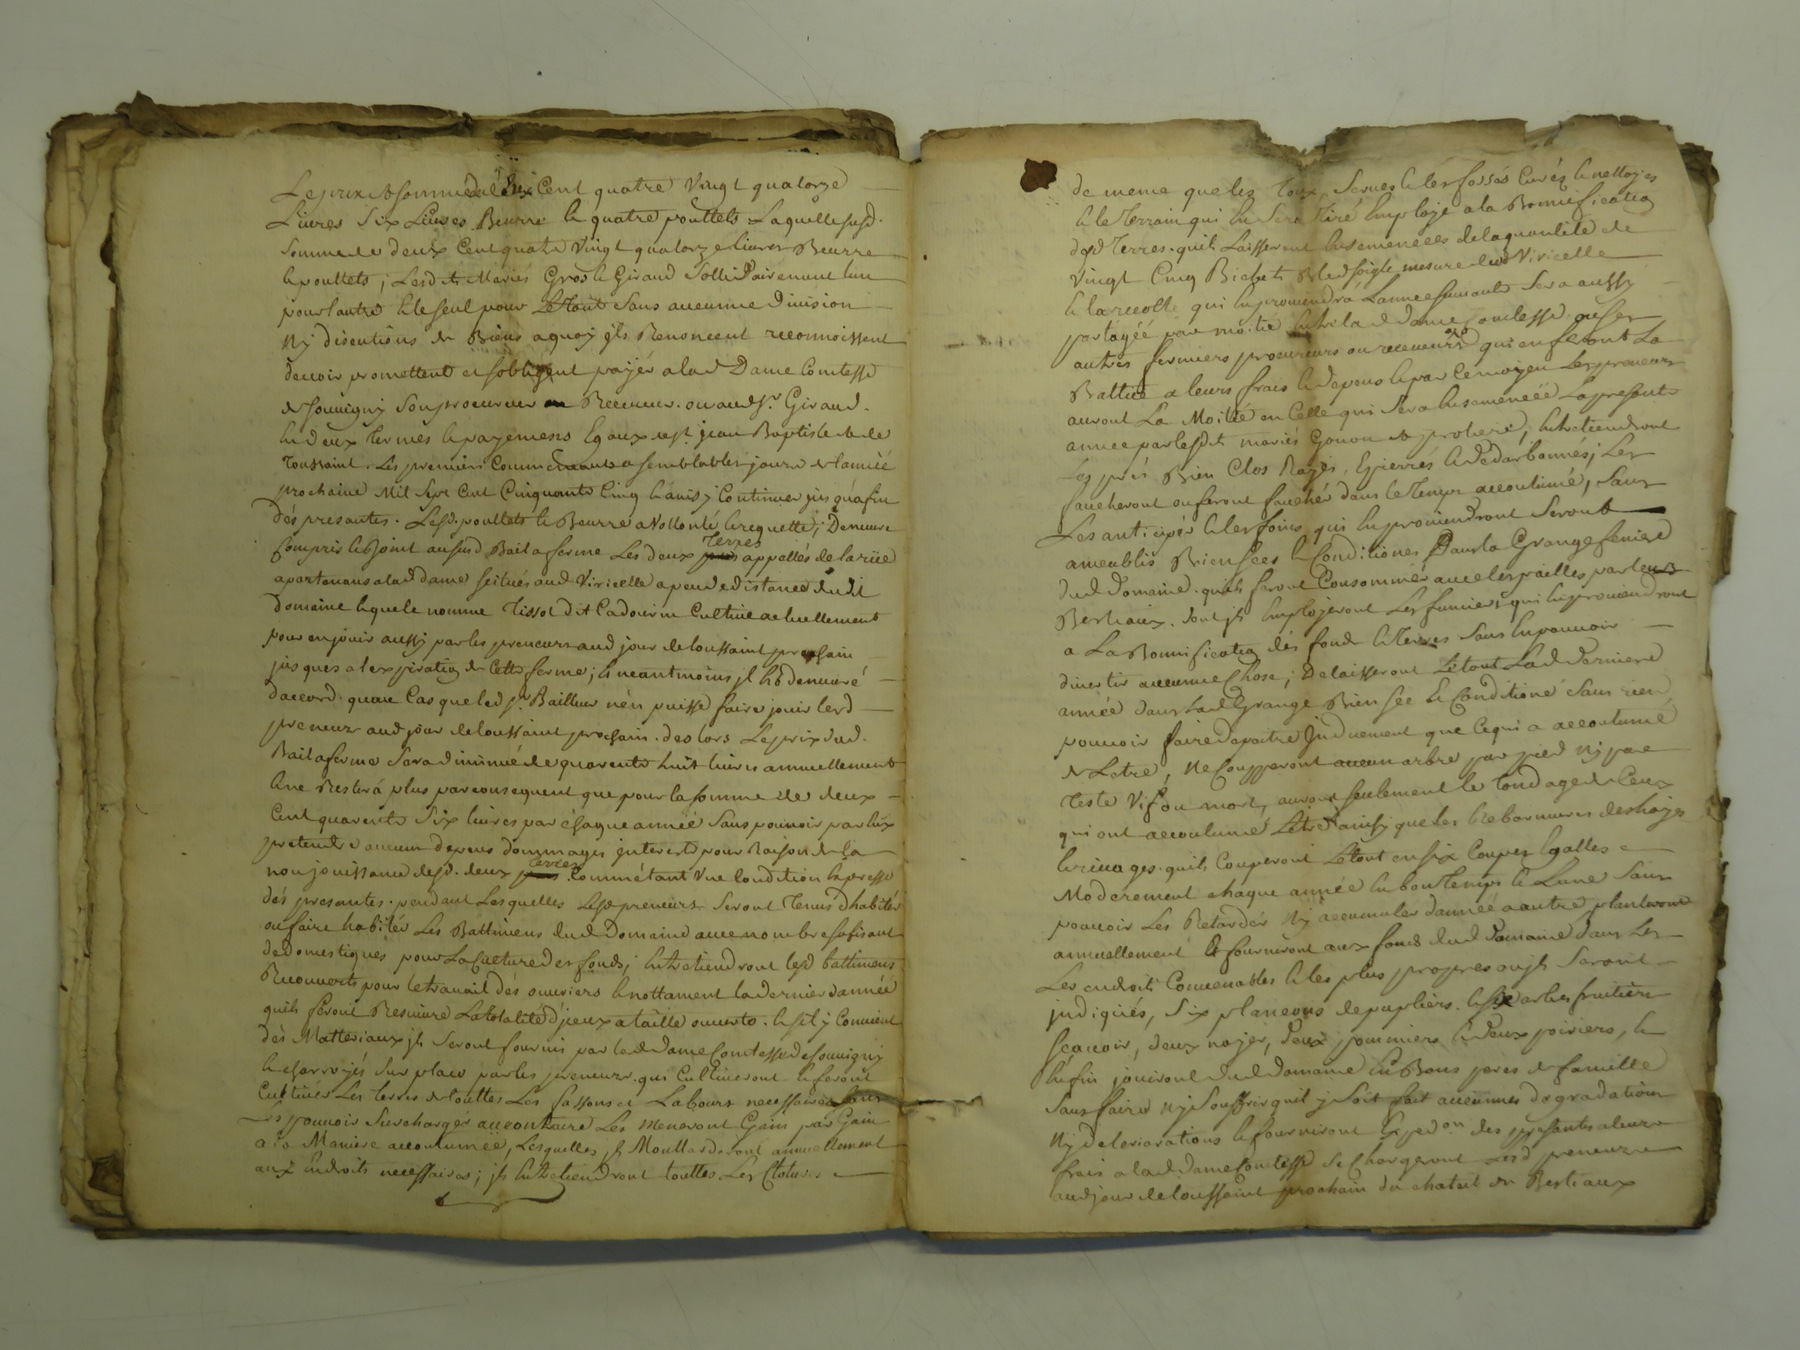 Le prix & somme de deux Cent quatre Vingt quatorze
Livres Six Livres Beurre & quatre poullets Laquelle susd.
Somme de deux Cent quatre Vingt quatorze livres Beurre
& poullets, Lesdts Mariés Gros & Giraud Sollidairement l'un
pour l'autre & le seul pour Le tout Sans aucunne Division
Ny discutions de Biens aquoy jls Renoncent reconnoissent
devoir promettent et s'obligent payér a lad Dame Comtesse
de Souvigny Son procureur Receveur. ou aud Sr. Giraud.
En deux termes & payemens Egaux St jean Baptiste & de
Toussaint. Les premiers Commencants a semblables jours de l'année
prochaine Mil Sept Cent Cinquante Cinq & ainsy Continuer jusqu'a fin
dés presantes. Lesd. poullets & Beurre a Vollonté & requette; Demeure
Compris & Joint au susd Bail a ferme Les deux Terres appellés de la rüe
apartenans a lad dame scitués aud Viricelle a peu de distance dudit
Domaine & que le nommé Tissot dit Cadour in Cultive actuellement
pour en jouir aussy par les preneurs aud jour de toussaint prochain
jusques a l'expiration de Cette ferme; & neantmoins jl Est demeuré
d'accord qu'au Cas que led Sr. Bailleur n'en puisse faire jouir lesd
preneurs aud jour de toussaint prochain. des lors Le prix dud.
Bail a ferme Sera diminué de quarente huit livres annuellement
& ne Restera plus par consequent que pour la somme de deux
Cent quarente Six livres par chaque année Sans pouvoir par Eux
pretendre aucuns depens dommages jnterests pour Raison de la
non jouissance desd. deux terres Comme étant Une Condition Expresse
dés presantes. pendant Lesquelles Lesd preneurs Seront Tenus d'habiter
ou faire habitér Les Battimens dud Domaine avec nombre sufisant
de Domestiques pour La Culture des fonds; Entretiendront lesd battimens
Recouverts pour le travail dés ouvriers & nottament la dernier d'année
quils feront Resuivre La totalité d'jceux a taille ouverte. & s'il y Convient
dés Matteriaux jls Seront fournis par lad dame Comtesse de Souvigny
& charroyés Sur place par les preneurs. qui Cultiveront & feront
Cultivés Les terres de touttes Les fassons et Labours necessaires Sans
Les pouvoir Surchargér au contraire Les Meneront Gain par Gain
a la Maniere accoutumée, Lesquelles jls annuellement
aux Endroits necessaires; jls Entretiendront touttes Les Clotures
de meme que les Serves & les fossés Curés & nettoyés
& le Terrain qui En Sera tiré Employé a la Bonnification
desd Terres. quils Laisseront Ensemencées de la quantité de
Vingt Cinq Bichets Bled seigle mesure dud Viricelle
& la recolte qui En proviendra L'année suivante Sera aussy
partagée par moitié Entre lad Dame Comtesse ou ses
autres fermiers procureurs ou receveurs qui en feront La
Battue a leurs frais & depens & par Ce moyen Les preneurs
auront La Moitié en Celle qui Sera Ensemencée La presente
année par lesdts mariés Gonon & protiere, Entretiendront
Les prés Bien Clos Rayés, Epierrés & Dedarbonnés; Les
faucheront ou feront fauchér dans le Temps accoutumé, Sans
Les anticipér & les foins qui En proviendront Seront
ameublis Biensées & Conditionés Dans la Grange feniere
dud Domaine. quils feront Consommér avec les pailles par leurs
Bestiaux. dont jls Employeront Les fumiers qui En proviendront
a La Bonnification dés fonds & Terres Sans En pouvoir
divertir aucunne Chose; Delaisseront Le tout Lad Derniere
année dans lad Grange Bien sée & Conditioné Sans rien
pouvoir faire depaitre Jnduement que Ce qui a accoutumé
de L'etre, Ne Coupperont aucun arbre par pied Ny par
Teste Vif ou mort, auront seulement le tondage de Ceux
qui ont accoutumé L'etre ainsy que les des hayes
quils Couperont Le tout en six Coupes Egalles
Moderement chaque année En bon Temps & Lune Sans
pouvoir Les Retardér Ny accumuler d'année a autre planteront
annuellement & fourniront aux fonds dud Domaine dans Les
Les endroits Convenables & les plus propres ou jls Seront
jndiqués, Six plancons de pupliers. & six arbres fruitiers
Sçavoir, deux noyer, deux pommiers & deux poiriers, &
Enfin jouiront dud domaine En Bons peres de famille
Sans faire Ny Souffrir quil y Soit fait aucunnes degradations
Ny deteriorations & fourniront Exped.on des presantes a leurs
frais a lad dame Comtesse Se Chargeront Lesd preneurs
aud jour de toussaint prochain du chatail de Bestiaux